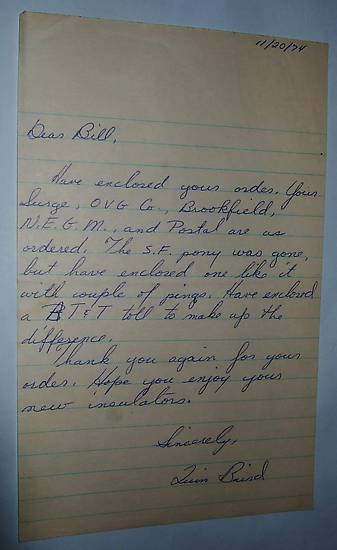 11/20/74
Dear Bill,
Have enclosed your order. Your
Surge, O.V.G Co., Brookfield,
N.E.G.M., and Postal are as
ordered. The S.F. pony was gone,
but have enclosed one like it
with couple of pings. Have enclosed
a AT&T toll to make up the
difference.
Thank you again for your
order. Hope you enjoy your
new insulators.
Sincerely,